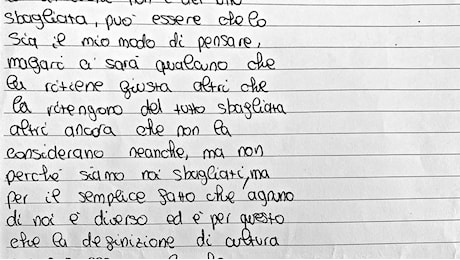 sbagliata, può essere che lo
sia il mio modo di pensare,
magari ci sarà qualcuno che
la ritiene giusta altri che
la ritengono del tutto sbagliata
altri ancora che non la
considerano neanche, ma non
perché siamo noi sbagliati, ma
per il semplice fatto che, ognuno
di noi è diverso ed è per questo
che la definizione di cultura